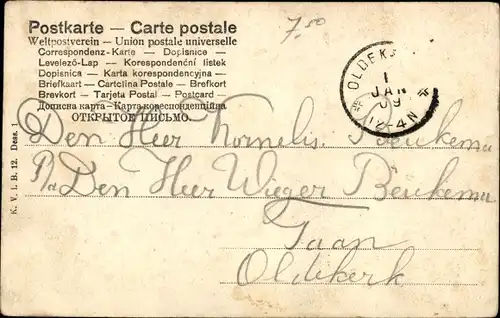 Postkarte — Carte postale
Weltpostverein — Union postale universelle
Correspondenz-Karte — Dopisnice —
Levelező-Lap — Korespondenční listek
Dopisnica — Karta korespondencyjna —
Briefkaart — Cartolina Postale — Brefkort
Brevkort — Tarjeta Postal — Postcard —
Дописна карта — Карта кореспонденційна
ОТКРЫТОЕ ПИСЬМО.
7.50
OLDEK
1
JAN
09
12-4N
K. V. i. B. 12. Dess. 1.
Den Heer Kornelis Beukema
P/a Den Heer Wieger Beukema
Faan
Oldekerk